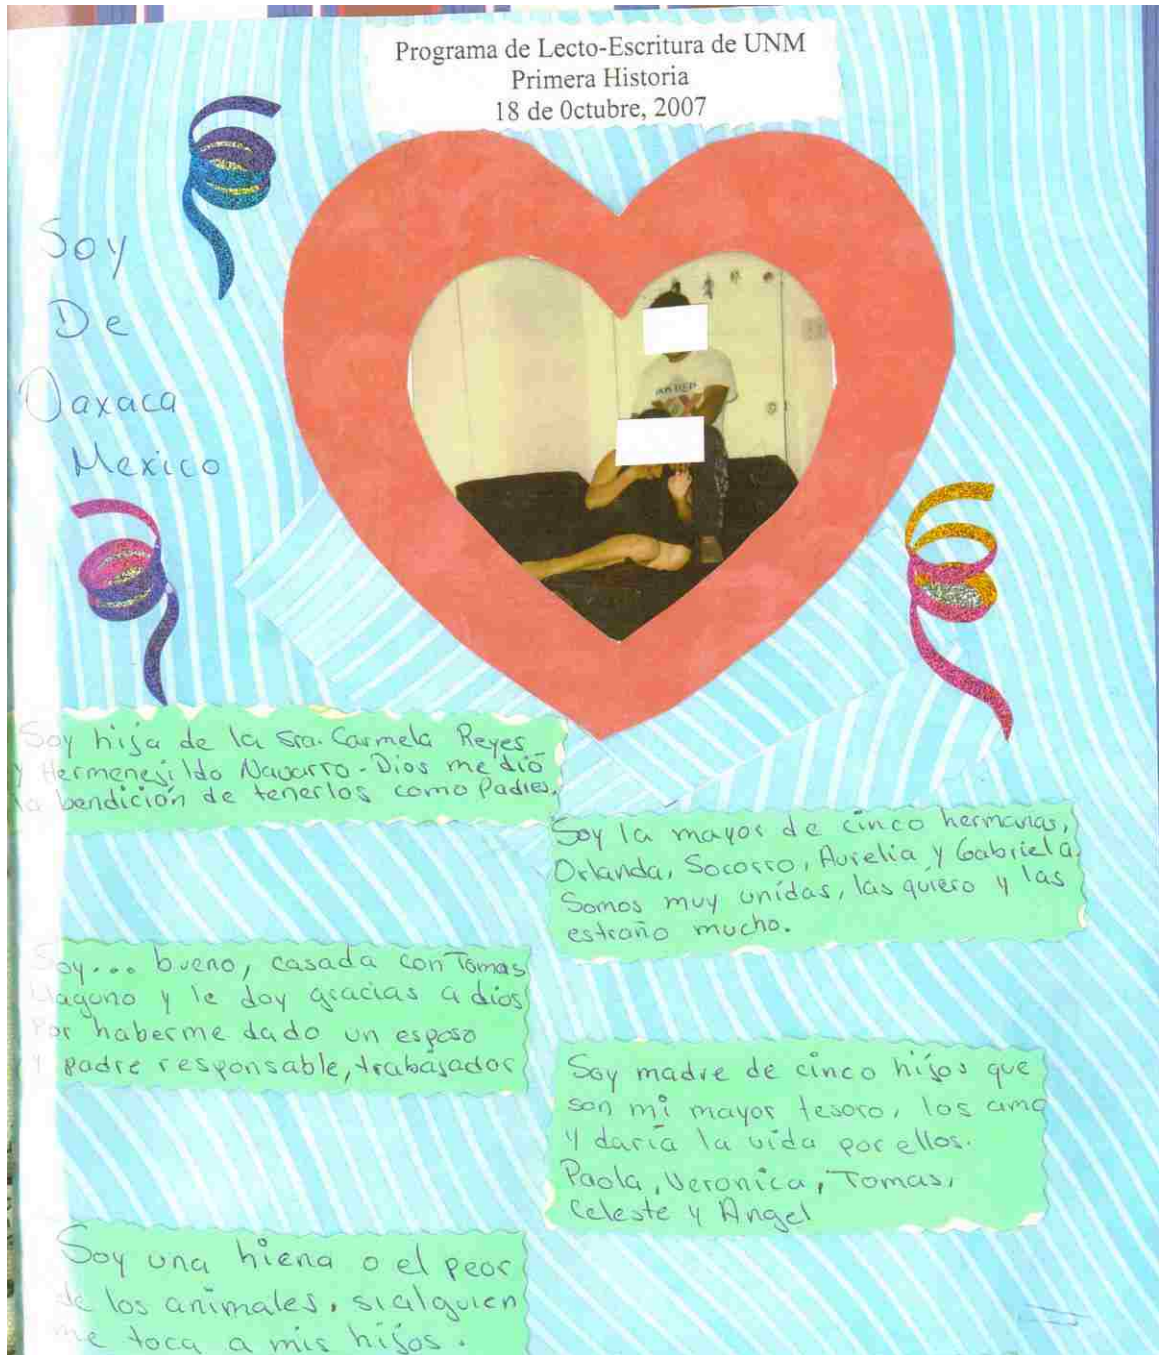 Programa de Lecto-Escritura de UNM
Primera Historia
18 de Octubre, 2007
Soy
De
Oaxaca
Mexico
Soy hija de la Sra. Carmela Reyes
y Hermenejildo Navarro - Dios me dió
la bendición de tenerlos como Padres.
Soy la mayor de cinco hermanas,
Orlanda, Socorro, Aurelia y Gabriela.
Somos muy unidas, las quiero y las
estraño mucho.
Soy... bueno, casada con Tomas
y le doy gracias a dios
Por haberme dado un esposo
y padre responsable, trabajador
Soy madre de cinco hijos que
son mi mayor tesoro, los amo
y daría la vida por ellos.
Paola, Veronica, Tomas,
Celeste y Angel
Soy una hiena o el peor
de los animales. si alguien
me toca a mis hijos.